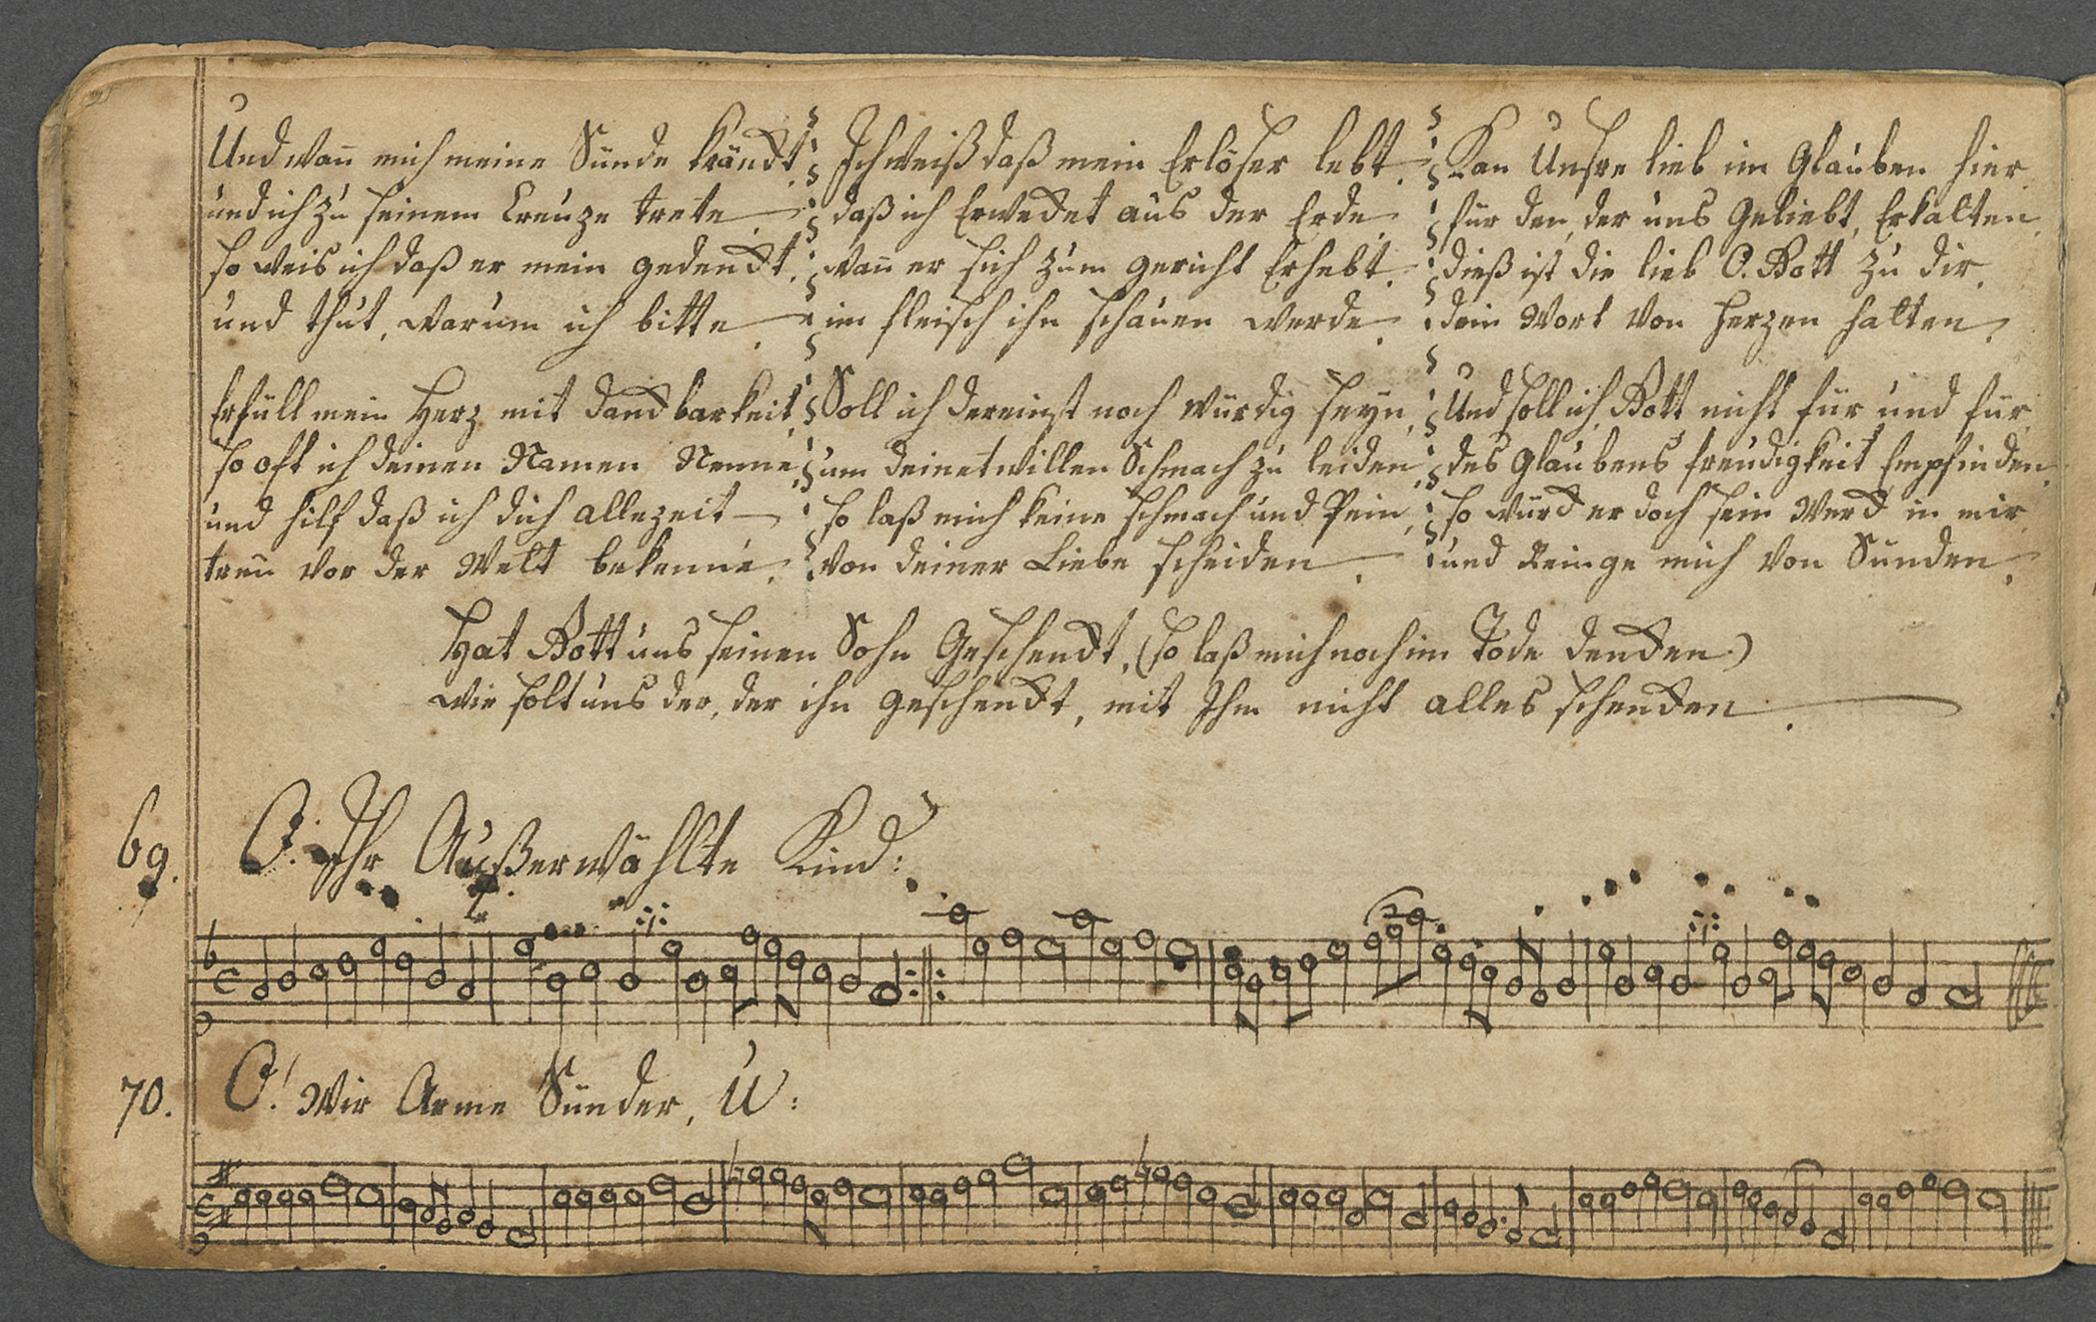 Und wañ mich meine Sünde kränckt,
und ich zu seinem Creuze trete
so weis ich daß er mein gedenckt,
und thut, warum ich bitte.
Erfüll mein Herz mit danckbarkeit,
so oft ich deinen Namen Nenne,
und hilf daß ich dich allezeit
treu vor der Welt bekenne.
Ich weiß daß mein Erlöser lebt.
daß ich Erwecket aus der Erde
wañ er sich zum gericht Erhebt.
im fleisch ihn schauen werde.
Soll ich dereinst noch würdig seyn,
um deinetwillen Schmach zu leiden,
so laß mich keine schmach und Pein,
von deiner Liebe scheiden.
Kan Unsre lieb im Glauben hier
für den, der uns Geliebt, Erkalten,
dieß ist die lieb O. Gott zu dir,
dein Wort von Herzen halten,
Und soll ich, Gott, nicht für und für
des Glaubens freudigkeit Empfinden
so würck er doch sein Werck in mir
und Reinge mich von Sünden,
Hat Gott uns seinen Sohn Geschenckt, (so laß mich noch im Tode dencken)
wie solt uns der, der ihn geschenckt, mit Ihm nicht alles schencken.
69. O. Ihr Außerwählte Kind:
70. O! Wir Arme Sünder, U: